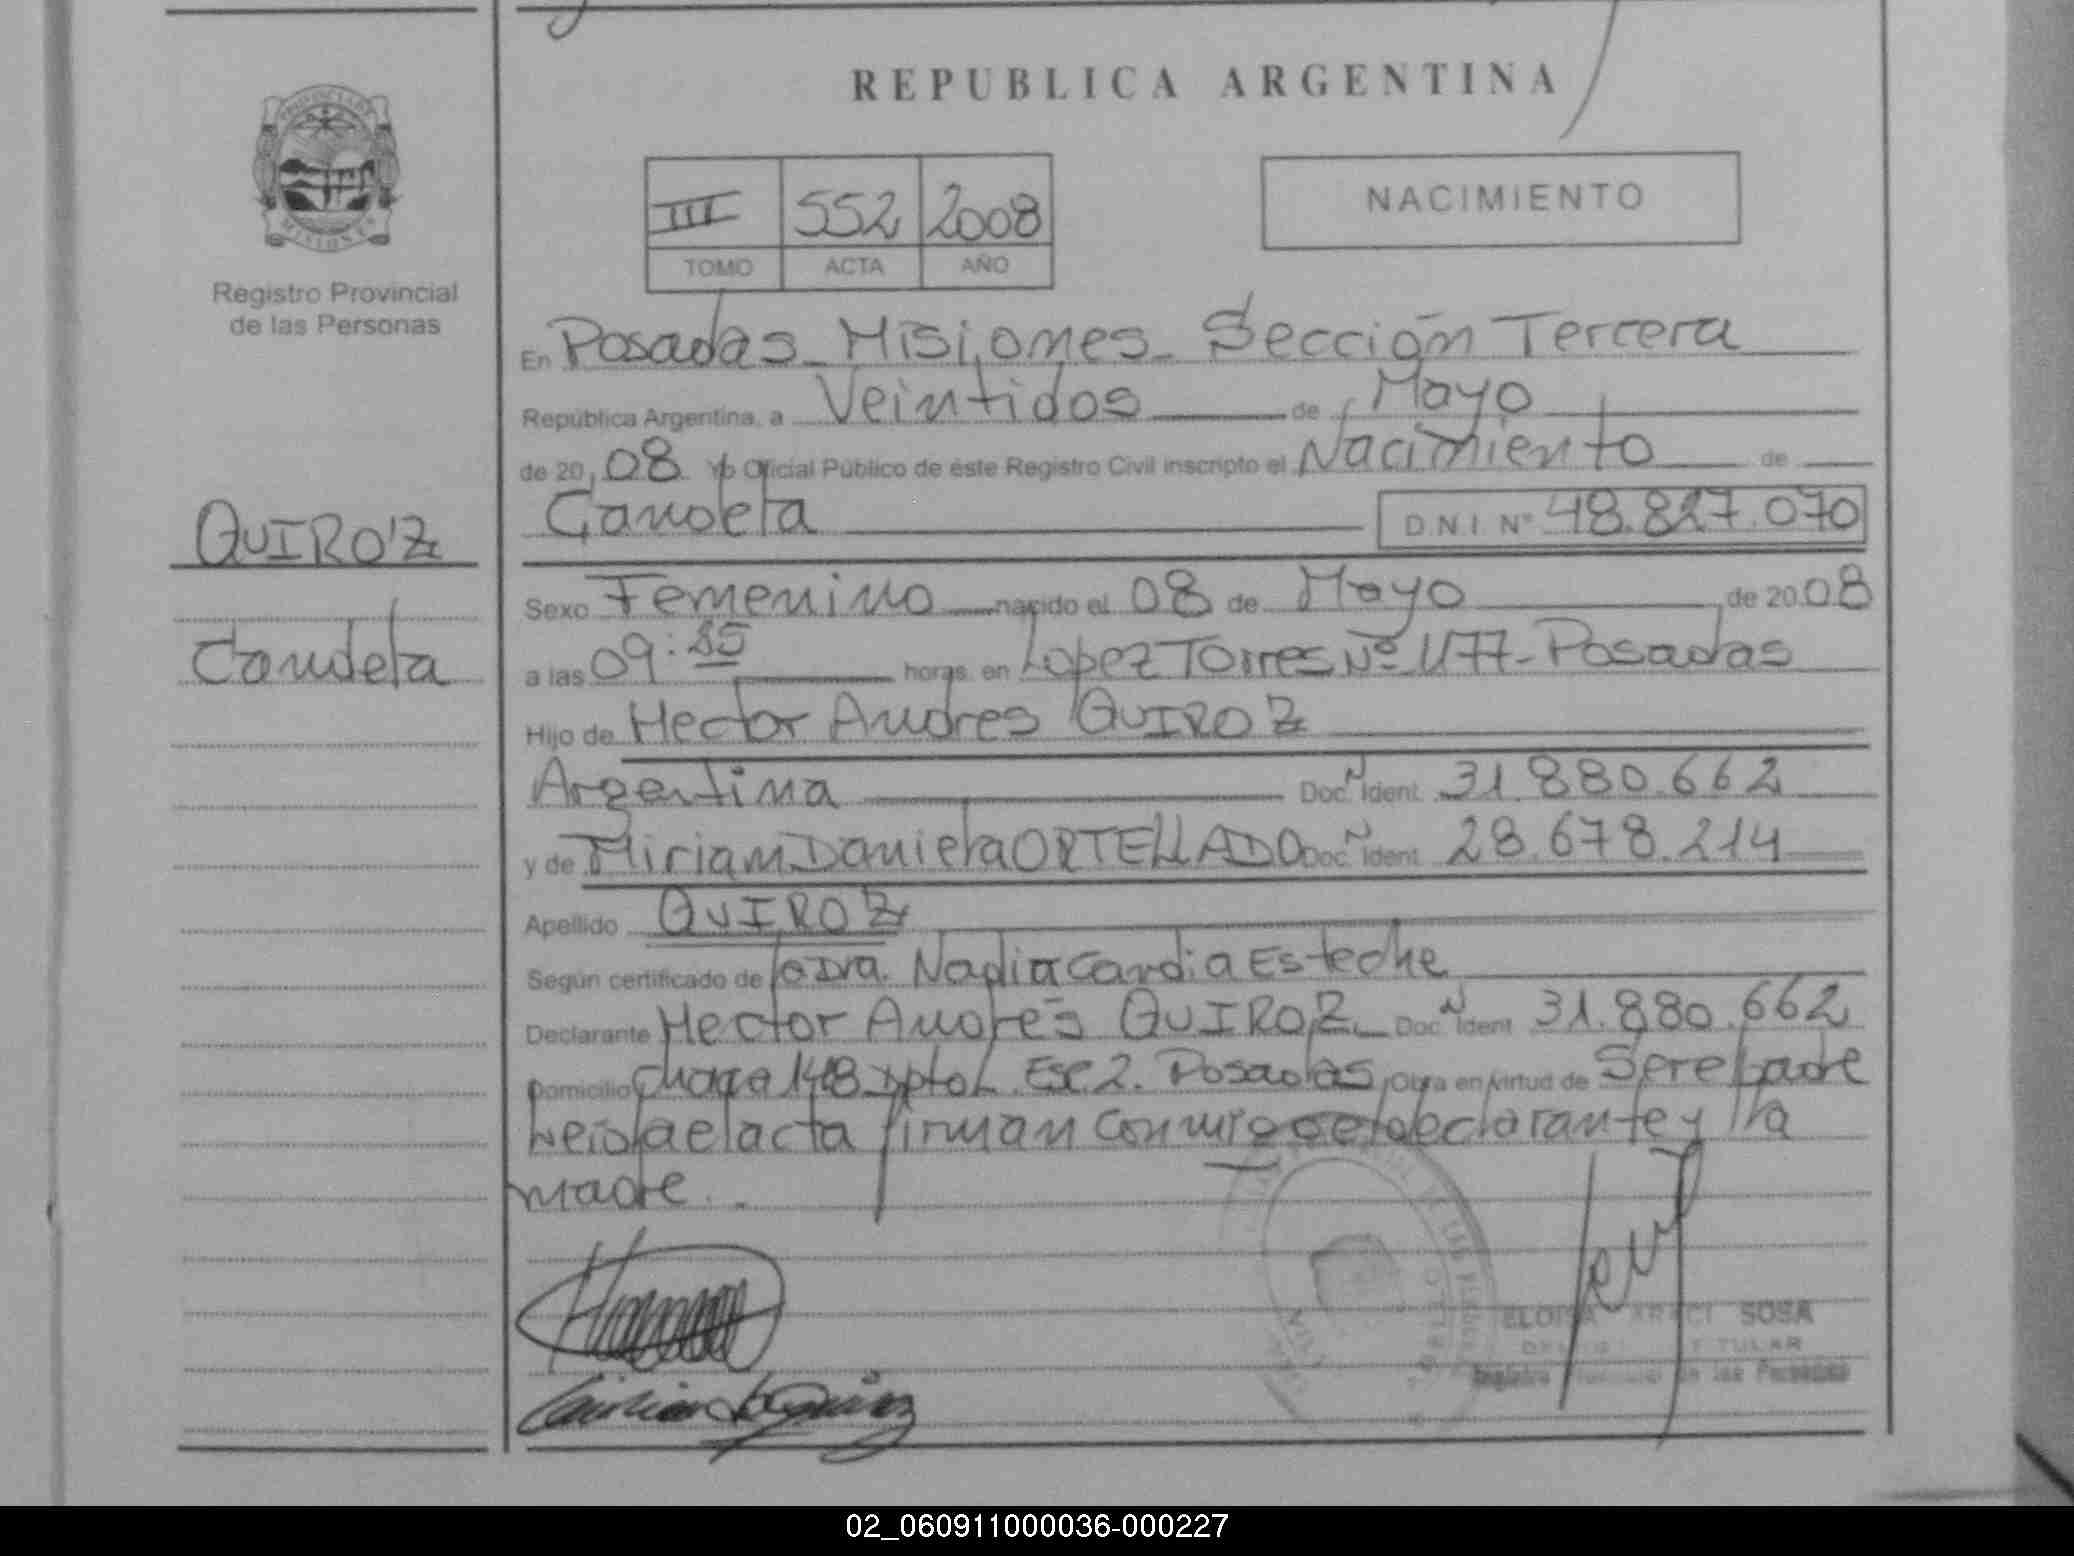 REPUBLICA ARGENTINA
PROVINCIA DE
MISIONES
Registro Provincial
de las Personas
III 552 2008
TOMO ACTA AÑO
NACIMIENTO
En Posadas Misiones Sección Tercera
República Argentina, a Veintidos de Mayo
de 20 08 Yo Oficial Público de éste Registro Civil inscripto el Nacimiento de
Candela D.N.I. Nº 48.827.070
QUIROZ
Candela
Sexo Femenino nacido el 08 de Mayo de 20 08
a las 09: horas en Lopez Torres Nº 1177 - Posadas
Hijo de Hector Andres QUIROZ
Argentina Doc. Ident. 31.880.662
y de Miriam Daniela ORTELLADO Doc. Ident. 28.678.214
Apellido QUIROZ
Según certificado de la Dra. Nadia Esteche
Declarante Hector Andrés QUIROZ Doc. Ident. 31.880.662
Domicilio 148 Dpto L Esc 2. Posadas Obra en virtud de Ser el padre
Leida el acta firman conmigo el declarante y la
madre.
ELOISA ARACI SOSA
TITULAR
Registro Provincial de las Personas
02_060911000036-000227